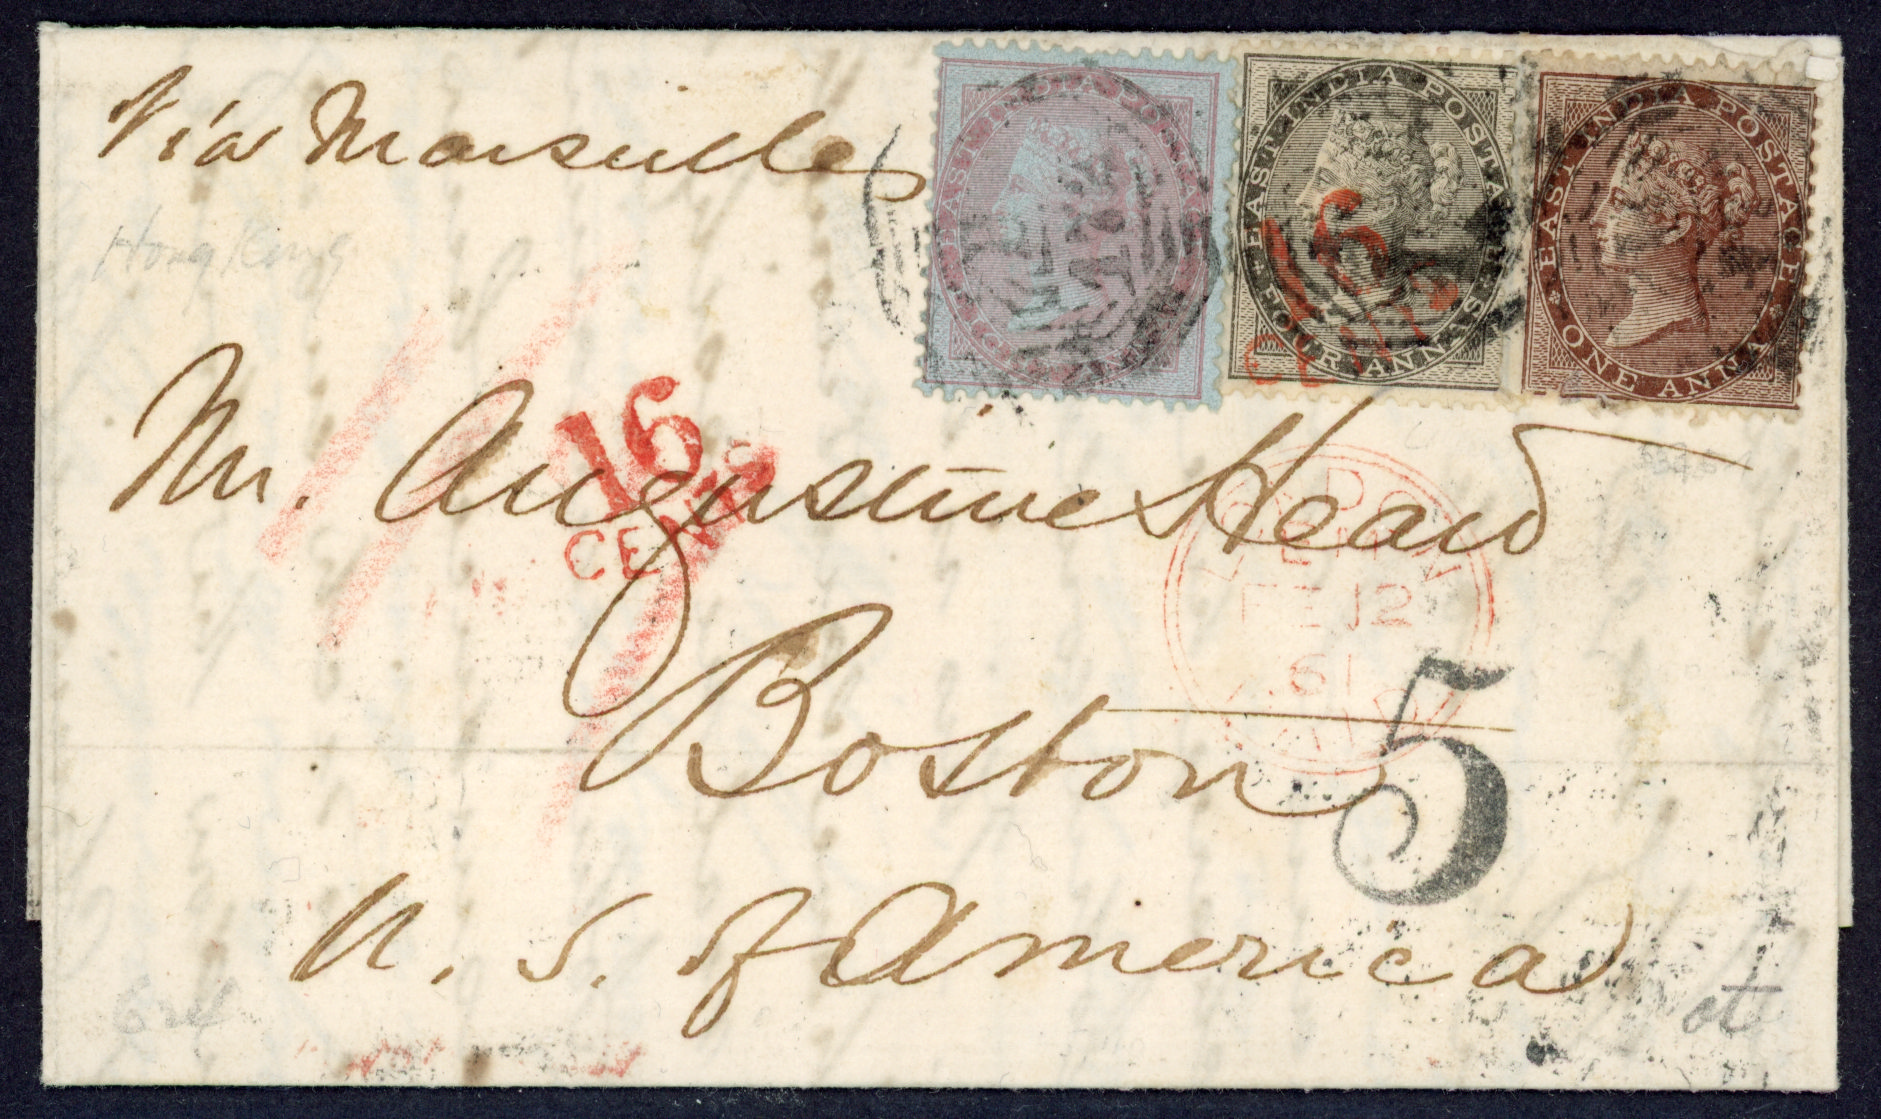 Via Marseilles
EAST INDIA POSTAGE
EIGHT ANNAS
EAST INDIA POSTAGE
FOUR ANNAS
EAST INDIA POSTAGE
ONE ANNA
Hong Kong
16
CENTS
16
CE
Mr. Augustine Heard
LONDON
FE 12
61
PAID
Boston
5
U. S. of America